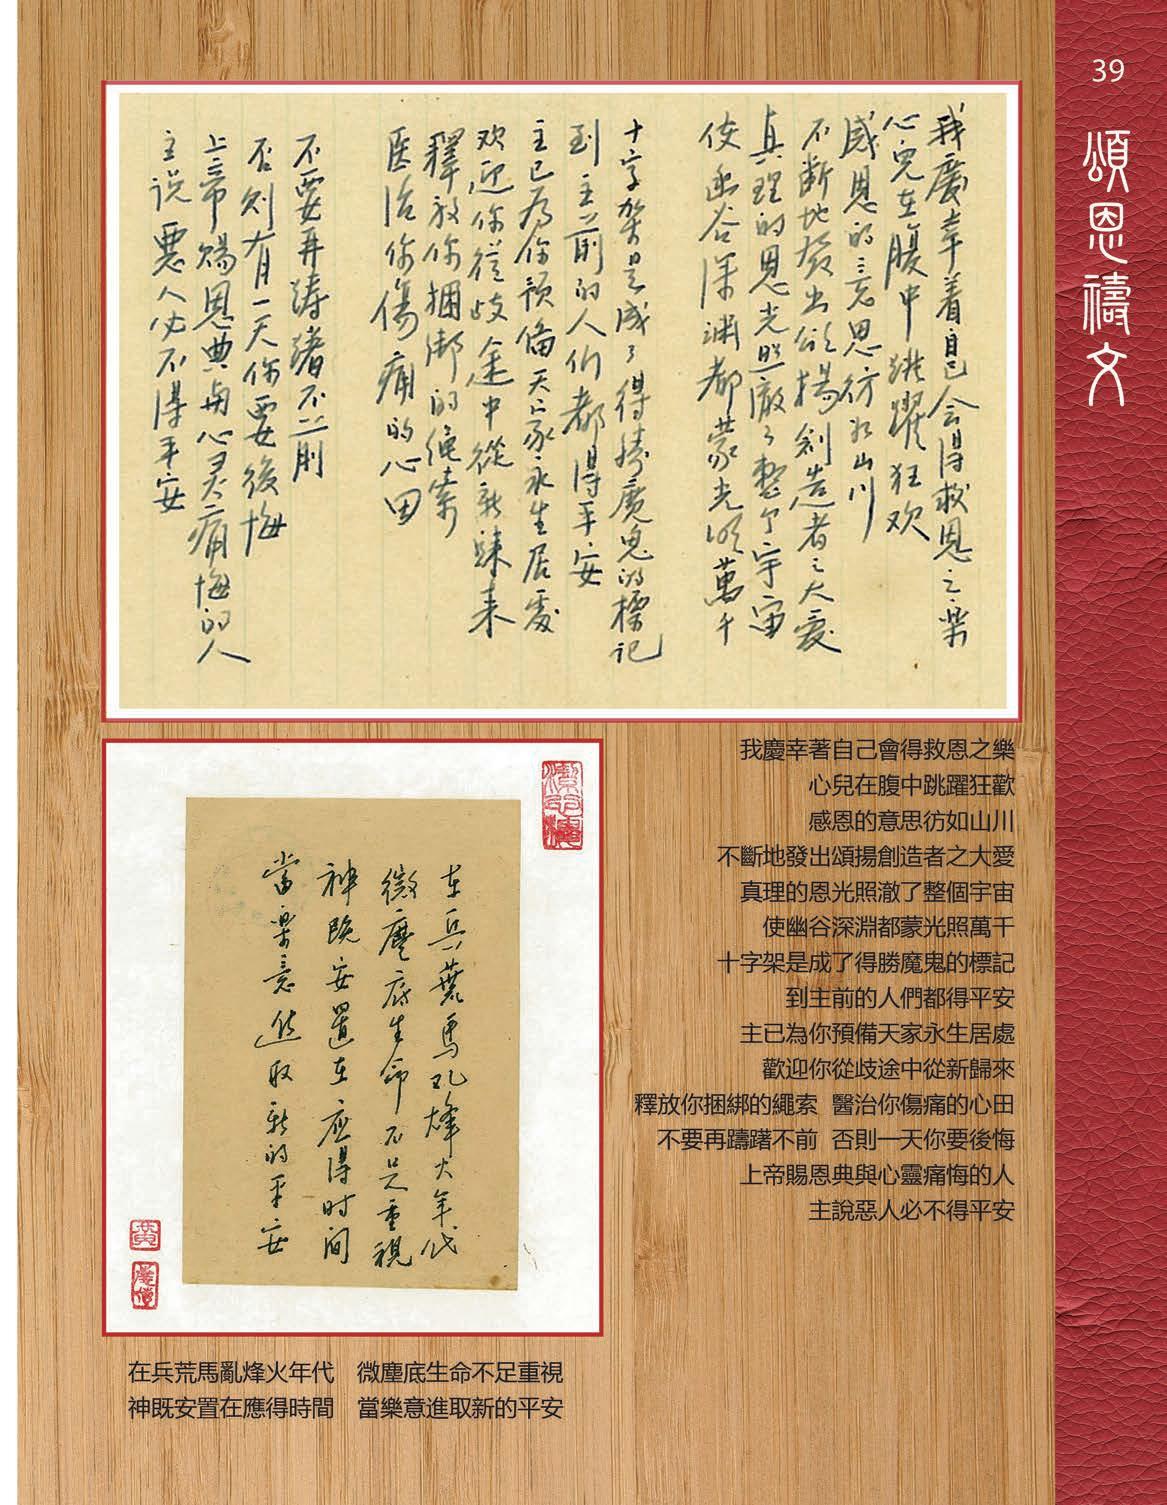 39
頌恩禱文
我慶幸着自己会得救恩之樂
心兒在腹中跳躍狂欢
感恩的意思彷如山川
不断地發出頌揚創造者之大愛
真理的恩光照澈了整个宇宙
使幽谷深渊都蒙光照萬千
十字架是成了得勝魔鬼的標記
到主前的人们都得平安
主已为你預备天家永生居處
欢迎你從歧途中從新歸来
釋放你捆绑的绳索
医治你傷痛的心田
不要再躊躇不前
否则有一天你要後悔
上帝赐恩典与心灵痛悔的人
主说惡人必不得平安
我慶幸著自己會得救恩之樂
心兒在腹中跳躍狂歡
感恩的意思彷如山川
不斷地發出頌揚創造者之大愛
真理的恩光照澈了整個宇宙
使幽谷深淵都蒙光照萬千
十字架是成了得勝魔鬼的標記
到主前的人們都得平安
主已為你預備天家永生居處
歡迎你從歧途中從新歸來
釋放你捆綁的繩索 醫治你傷痛的心田
不要再躊躇不前 否則一天你要後悔
上帝賜恩典與心靈痛悔的人
主說惡人必不得平安
在兵荒馬乱烽火年代
微塵底生命不足重視
神既安置在应得时间
當樂意进取新的平安
黃
在兵荒馬亂烽火年代 微塵底生命不足重視
神既安置在應得時間 當樂意進取新的平安